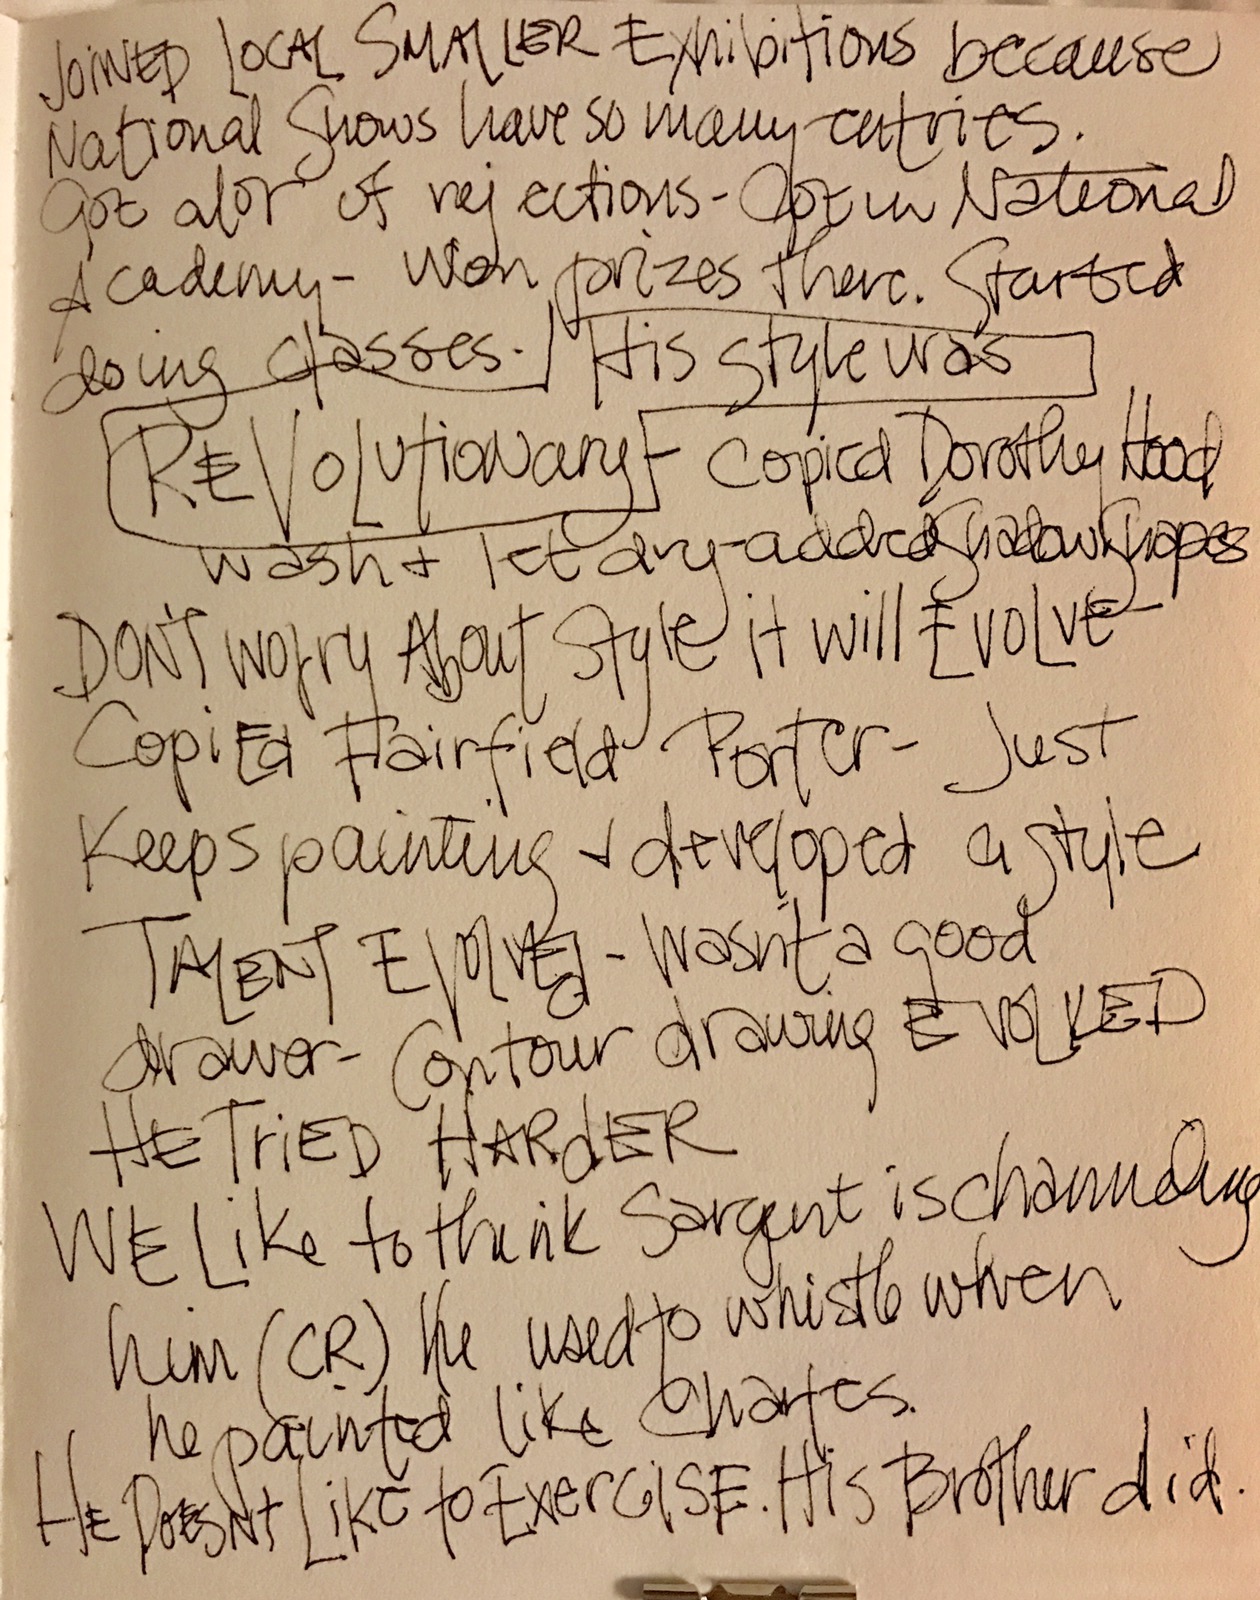 JOINED LOCAL SMALLER Exhibitions because
National Shows have so many entries.
Got alot of rejections - Got in National
Academy - Won prizes there. Started
doing classes. His style was
REVOLUtionary - Copied Dorothy Hood
wash + let dry - added Shadow Shapes
DON'T worry About Style it will EVOLVE -
CopiEd Fairfield Porter - Just
Keeps painting + developed a style
TALENT EVOLVEd - Wasn't a good
drawer - Contour drawing EVOLVED
HE TriED HARdER
WE Like to think Sargent is channeling
him (CR) He used to whistle when
he painted like Charles.
HE DOESN'T LIKE to ExerCISE. His Brother did.